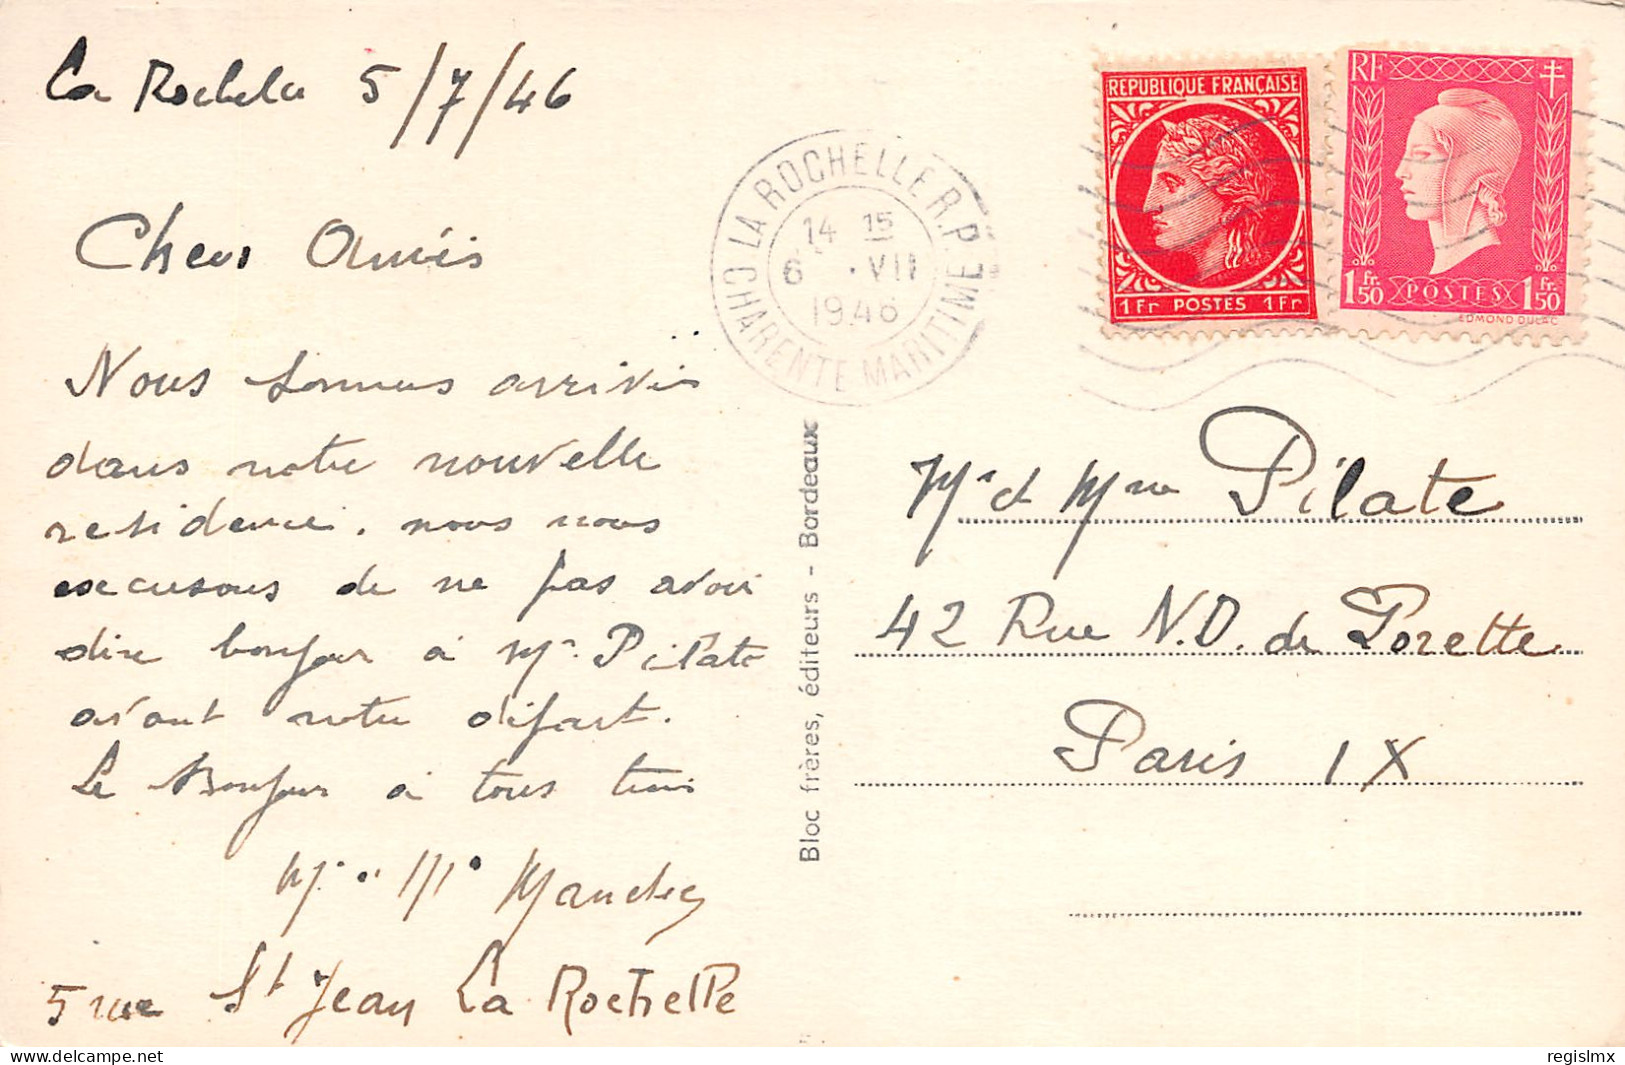 La Rochelle 5/7/46
Chers Amis
Nous sommes arrivés
dans notre nouvelle
residence. nous nous
excusons de ne pas avoir
dire bonjour à Mr. Pilate
avant notre départ.
Le Bonjour à tous trois
5 rue St Jean La Rochelle
LA ROCHELLE R.P.
14 15
6 .VII
1946
CHARENTE MARITIME
REPUBLIQUE FRANÇAISE
1 Fr POSTES 1 Fr
RF
1 Fr. 50 POSTES 1 Fr. 50
EDMOND DULAC
Bloc frères, éditeurs - Bordeaux
Mr et Mme Pilate
42 Rue N.D. de Lorette
Paris IX
regislmx
delcampe.net